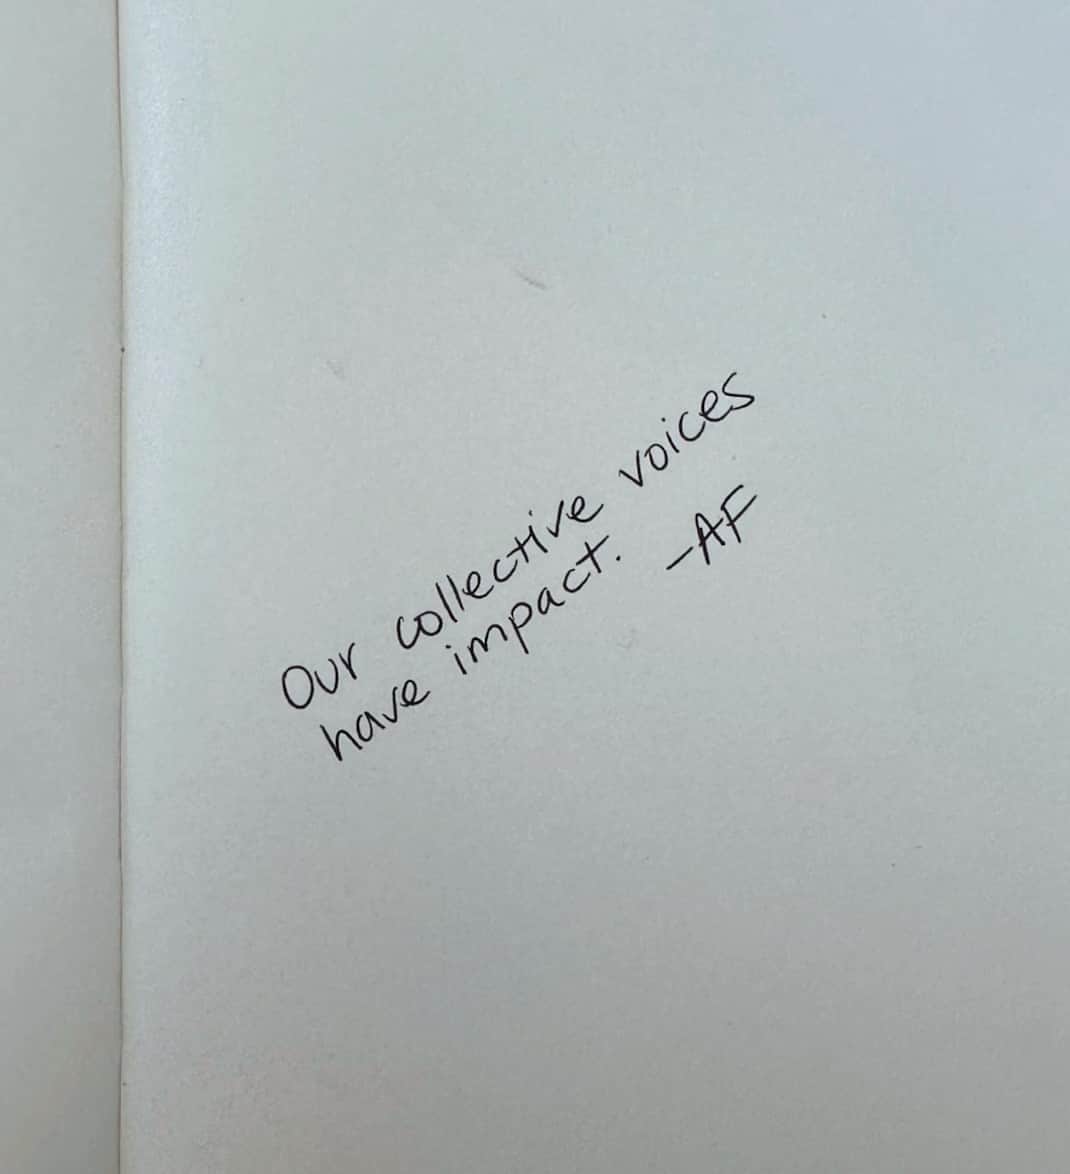 Our collective voices
have impact. -AF